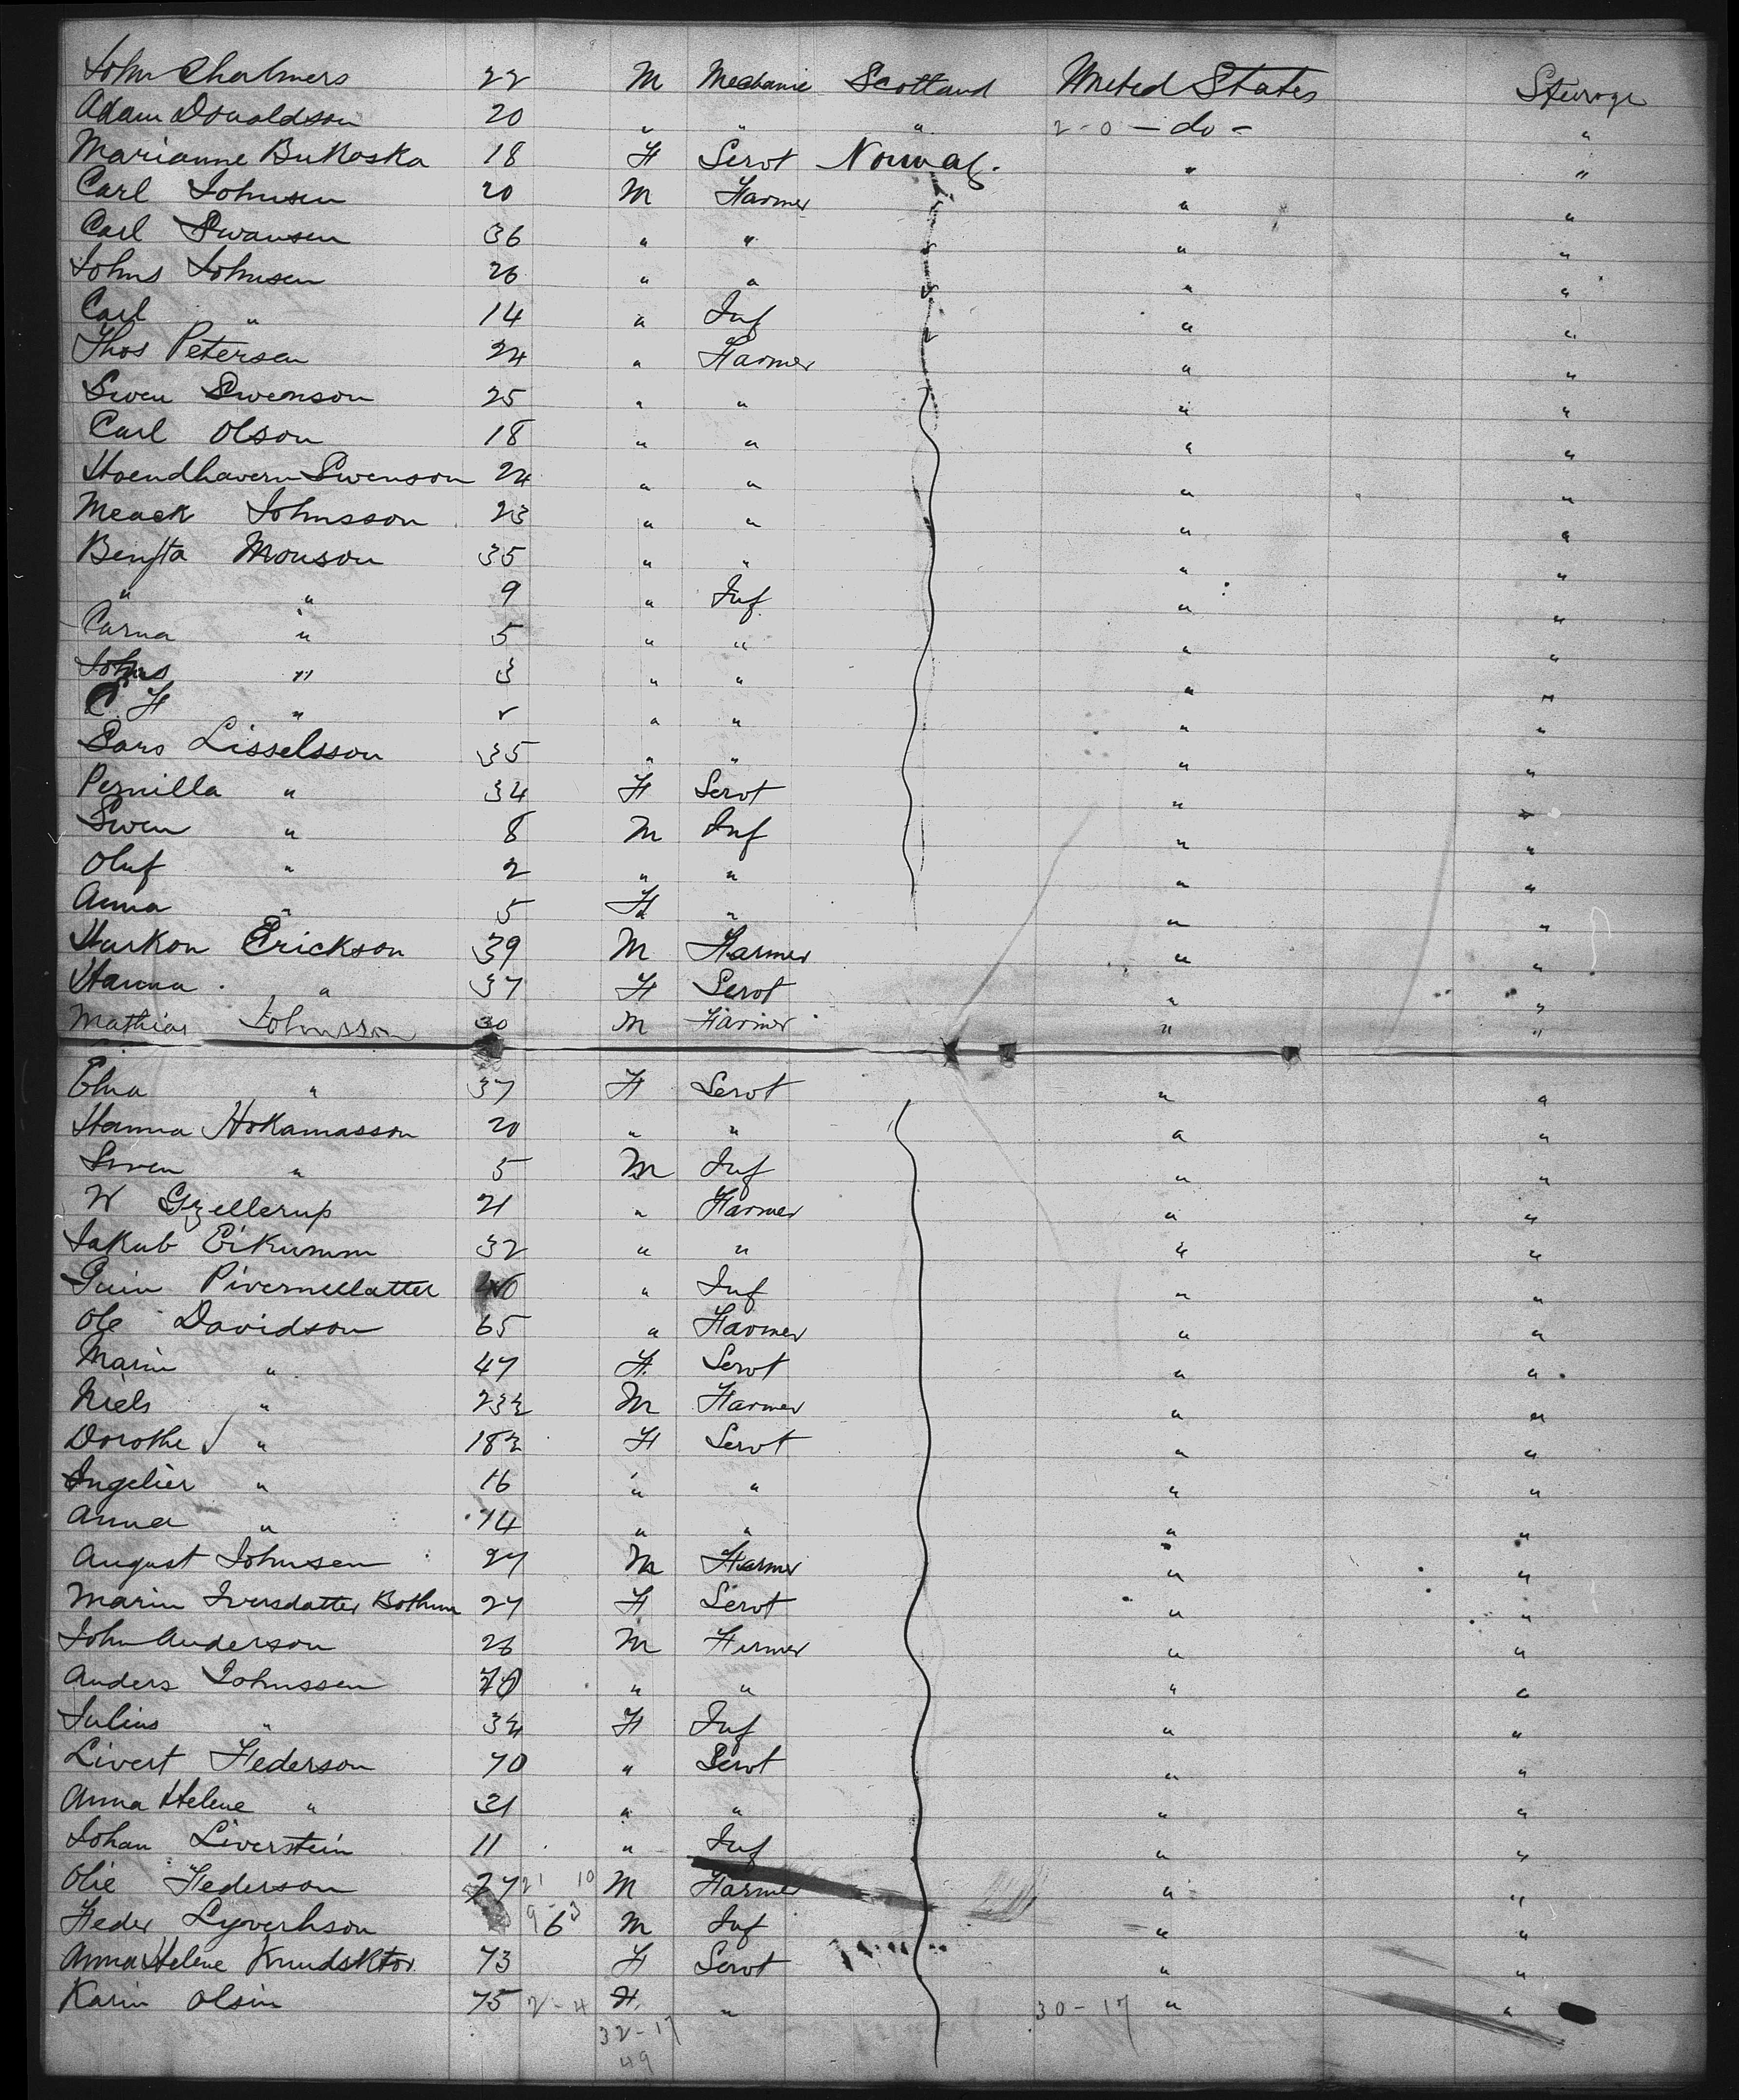 John Chalmers 22 M Mechanic Scotland United States Steerage
Adam Donaldson 20 " " " 2-0 - do - "
Marianne Bukoska 18 F Servt Norway. " "
Carl Johnsen 20 M Farmer " "
Carl Swansen 36 " " " "
Johns Johnsen 26 " " " "
Carl " 14 " Inf " "
Thos Petersen 24 " Farmer " "
Swen Swenson 25 " " " "
Carl Olson 18 " " " "
Swenson 24 " " " "
Meack Johnsson 23 " " " "
Bengta Monson 35 " " " "
" " 9 " Inf " "
Carna " 5 " " " "
Johns " 3 " " " "
C. F " 2 " " " "
Lars Lisselsson 35 " " " "
Pernilla " 34 F Servt " "
Swen " 8 M Inf " "
Oluf " 2 " " " "
Anna " 5 F " " "
Harkon Erickson 39 M Farmer " "
Hanna " 37 F Servt " "
Mathias Johnsson 30 M Farmer " "
Elna " 37 F Servt " "
Hanna Hokamasson 20 " " " "
Swen " 5 M Inf " "
N Gzellerup 21 " Farmer " "
Jakub Eikumm 32 " " " "
Pivernellatter " Inf " "
Ole Davidson 65 " Farmer " "
Marin " 47 F. Servt " "
Niels " 23½ M Farmer " "
Dorothe " 18½ F Servt " "
Ingelier " 16 " " " "
Anna " 14 " " " "
August Johnsen 27 M Farmer " "
Marin Iversdatter Bothum 27 F Servt " "
John Anderson 26 M Farmer " "
Anders Johnssen " " " "
Julius " 3½ F Inf " "
Livert Federson 70 " Servt " "
Anna Helene " 31 " " " "
Johan Liverstein 11 " Inf " "
Olie Federson 27 21 10 M Farmer " "
Feder Lyverhson 9-3 6 M Inf " "
Anna Helene Knudsktor 73 F Servt " "
Karin Olsin 75 2-4 F. " 30-17 " "
32-17
49